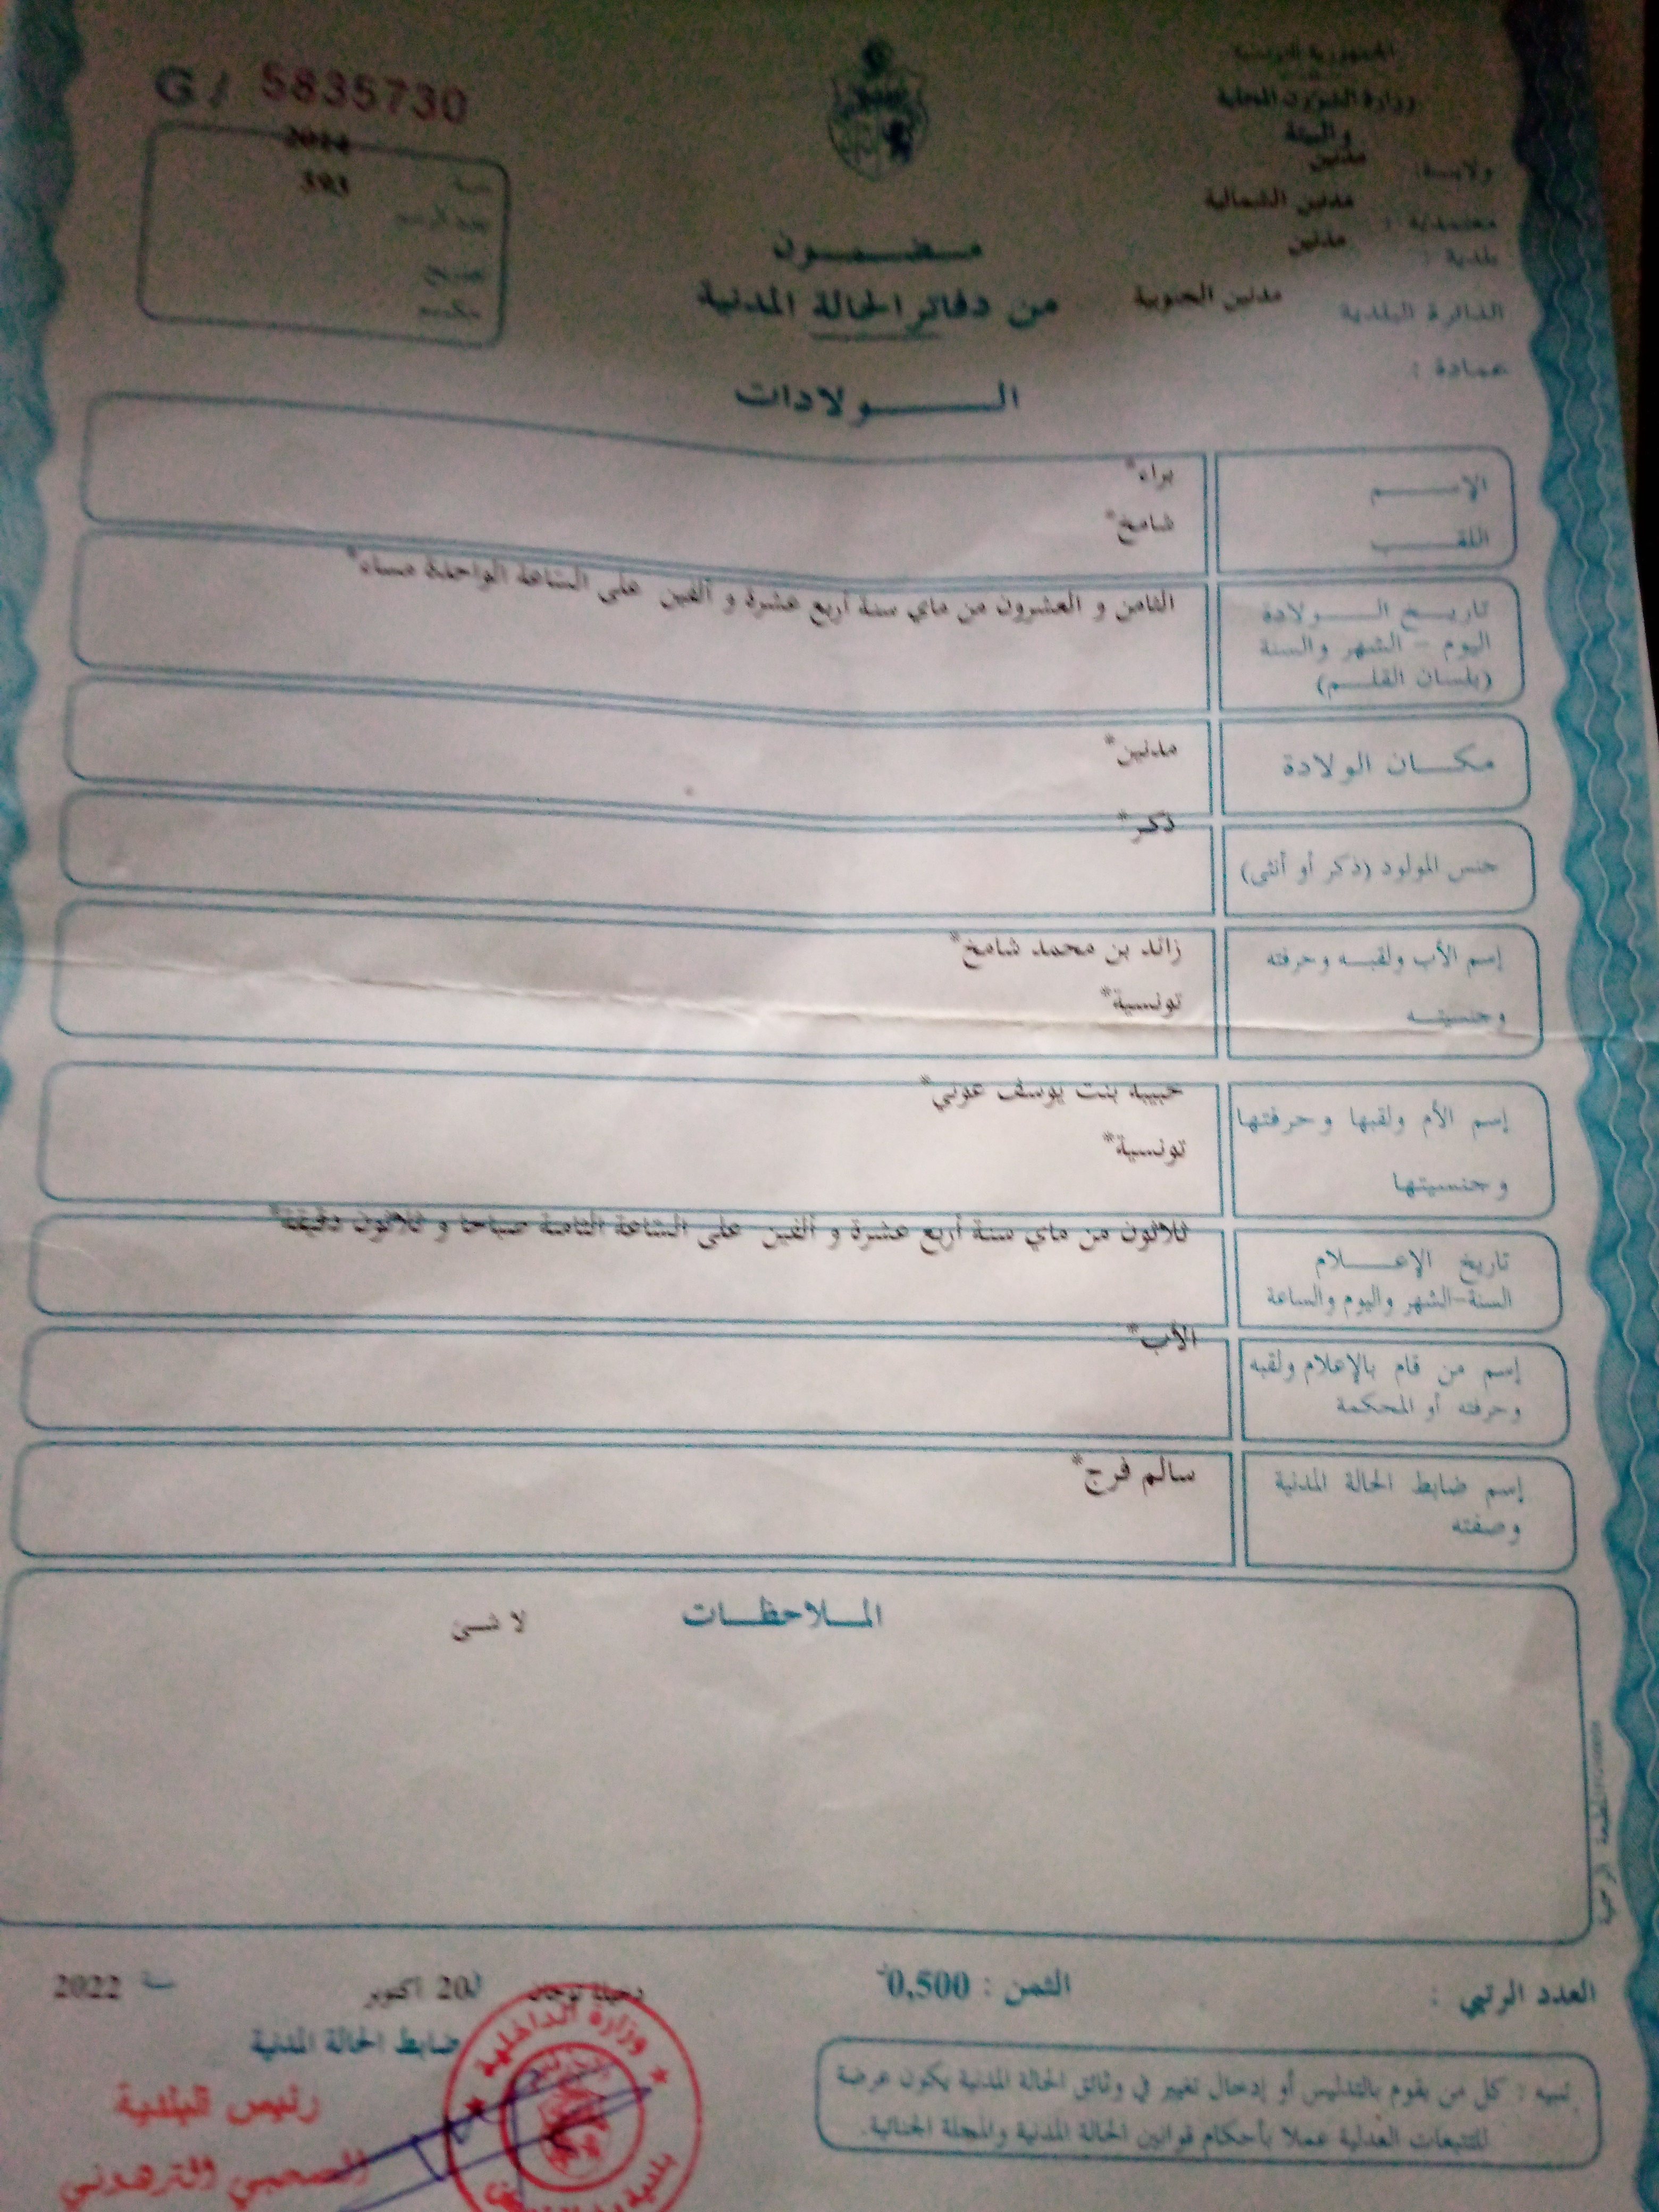 G/ 5835730
الجمهورية التونسية
وزارة الشؤون المحلية
والبيئة
ولاية: مدنين
معتمدية : مدنين الشمالية
بلدية : مدنين
الدائرة البلدية مدنين الجنوبية
عمادة :
سنة 2014
عدد الرسم 593
مضمون
من دفاتر الحالة المدنية
الولادات
الإسم براء*
اللقب شامخ*
تاريخ الولادة الثامن و العشرون من ماي سنة أربع عشرة و ألفين على الساعة الواحدة مساء*
اليوم - الشهر والسنة
(بلسان القلم)
مكان الولادة مدنين*
جنس المولود (ذكر أو أنثى) ذكر*
إسم الأب ولقبه وحرفته زائد بن محمد شامخ*
وجنسيته تونسية*
إسم الأم ولقبها وحرفتها حبيبة بنت يوسف عوني*
وجنسيتها تونسية*
تاريخ الإعلام ثلاثون من ماي سنة أربع عشرة و ألفين على الساعة الثامنة صباحا و ثلاثون دقيقة*
السنة-الشهر واليوم والساعة
إسم من قام بالإعلام ولقبه الأب*
وحرفته أو المحكمة
إسم ضابط الحالة المدنية سالم فرج*
وصفته
الملاحظات لا شىء
المطبعة الرسمية
العدد الرتبي :
الثمن : 0,500
دخيلة توجان 20 أكتوبر سنة 2022
ضابط الحالة المدنية
رئيس البلدية
الترهوني
وزارة الداخلية
تنبيه : كل من يقوم بالتدليس أو إدخال تغيير في وثائق الحالة المدنية يكون عرضة
للتتبعات العدلية عملا بأحكام قوانين الحالة المدنية والمجلة الجنائية.